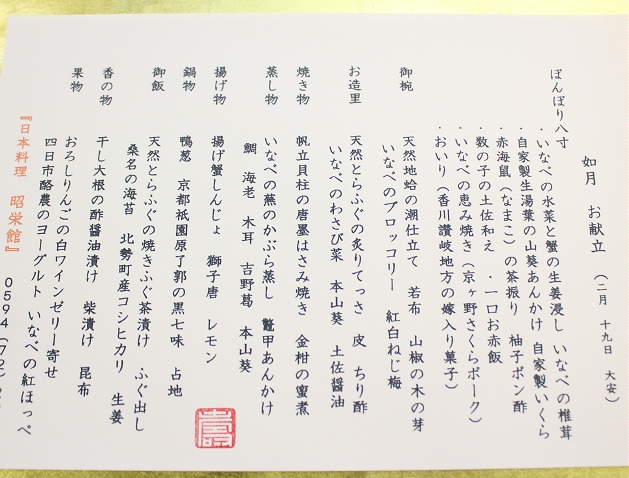 如月　お献立　（二月　十九日　大安）
ぼんぼり八寸
・いなべの水菜と蟹の生姜浸し　いなべの椎茸
・自家製生湯葉の山葵あんかけ　自家製いくら
・赤海鼠（なまこ）の茶振り　柚子ポン酢
・数の子の土佐和え　・一口お赤飯
・いなべの恵み焼き（京ヶ野さくらポーク）
・おいり（香川讃岐地方の嫁入り菓子）
御椀　天然地蛤の潮仕立て　若布　山椒の木の芽
いなべのブロッコリー　紅白ねじ梅
お造里　天然とらふぐの炙りてっさ　皮　ちり酢
いなべのわさび菜　本山葵　土佐醤油
焼き物　帆立貝柱の唐墨はさみ焼き　金柑の蜜煮
蒸し物　いなべの蕪のかぶら蒸し　鼈甲あんかけ
鯛　海老　木耳　吉野葛　本山葵
揚げ物　揚げ蟹しんじょ　獅子唐　レモン
鍋物　鴨葱　京都祇園原了郭の黒七味　占地
御飯　天然とらふぐの焼きふぐ茶漬け　ふぐ出し
桑名の海苔　北勢町産コシヒカリ　生姜
香の物　干し大根の酢醤油漬け　柴漬け　昆布
果物　おろしりんごの白ワインゼリー寄せ
四日市酪農のヨーグルト　いなべの紅ほっぺ
『日本料理　昭栄館』　０５９４（７２）